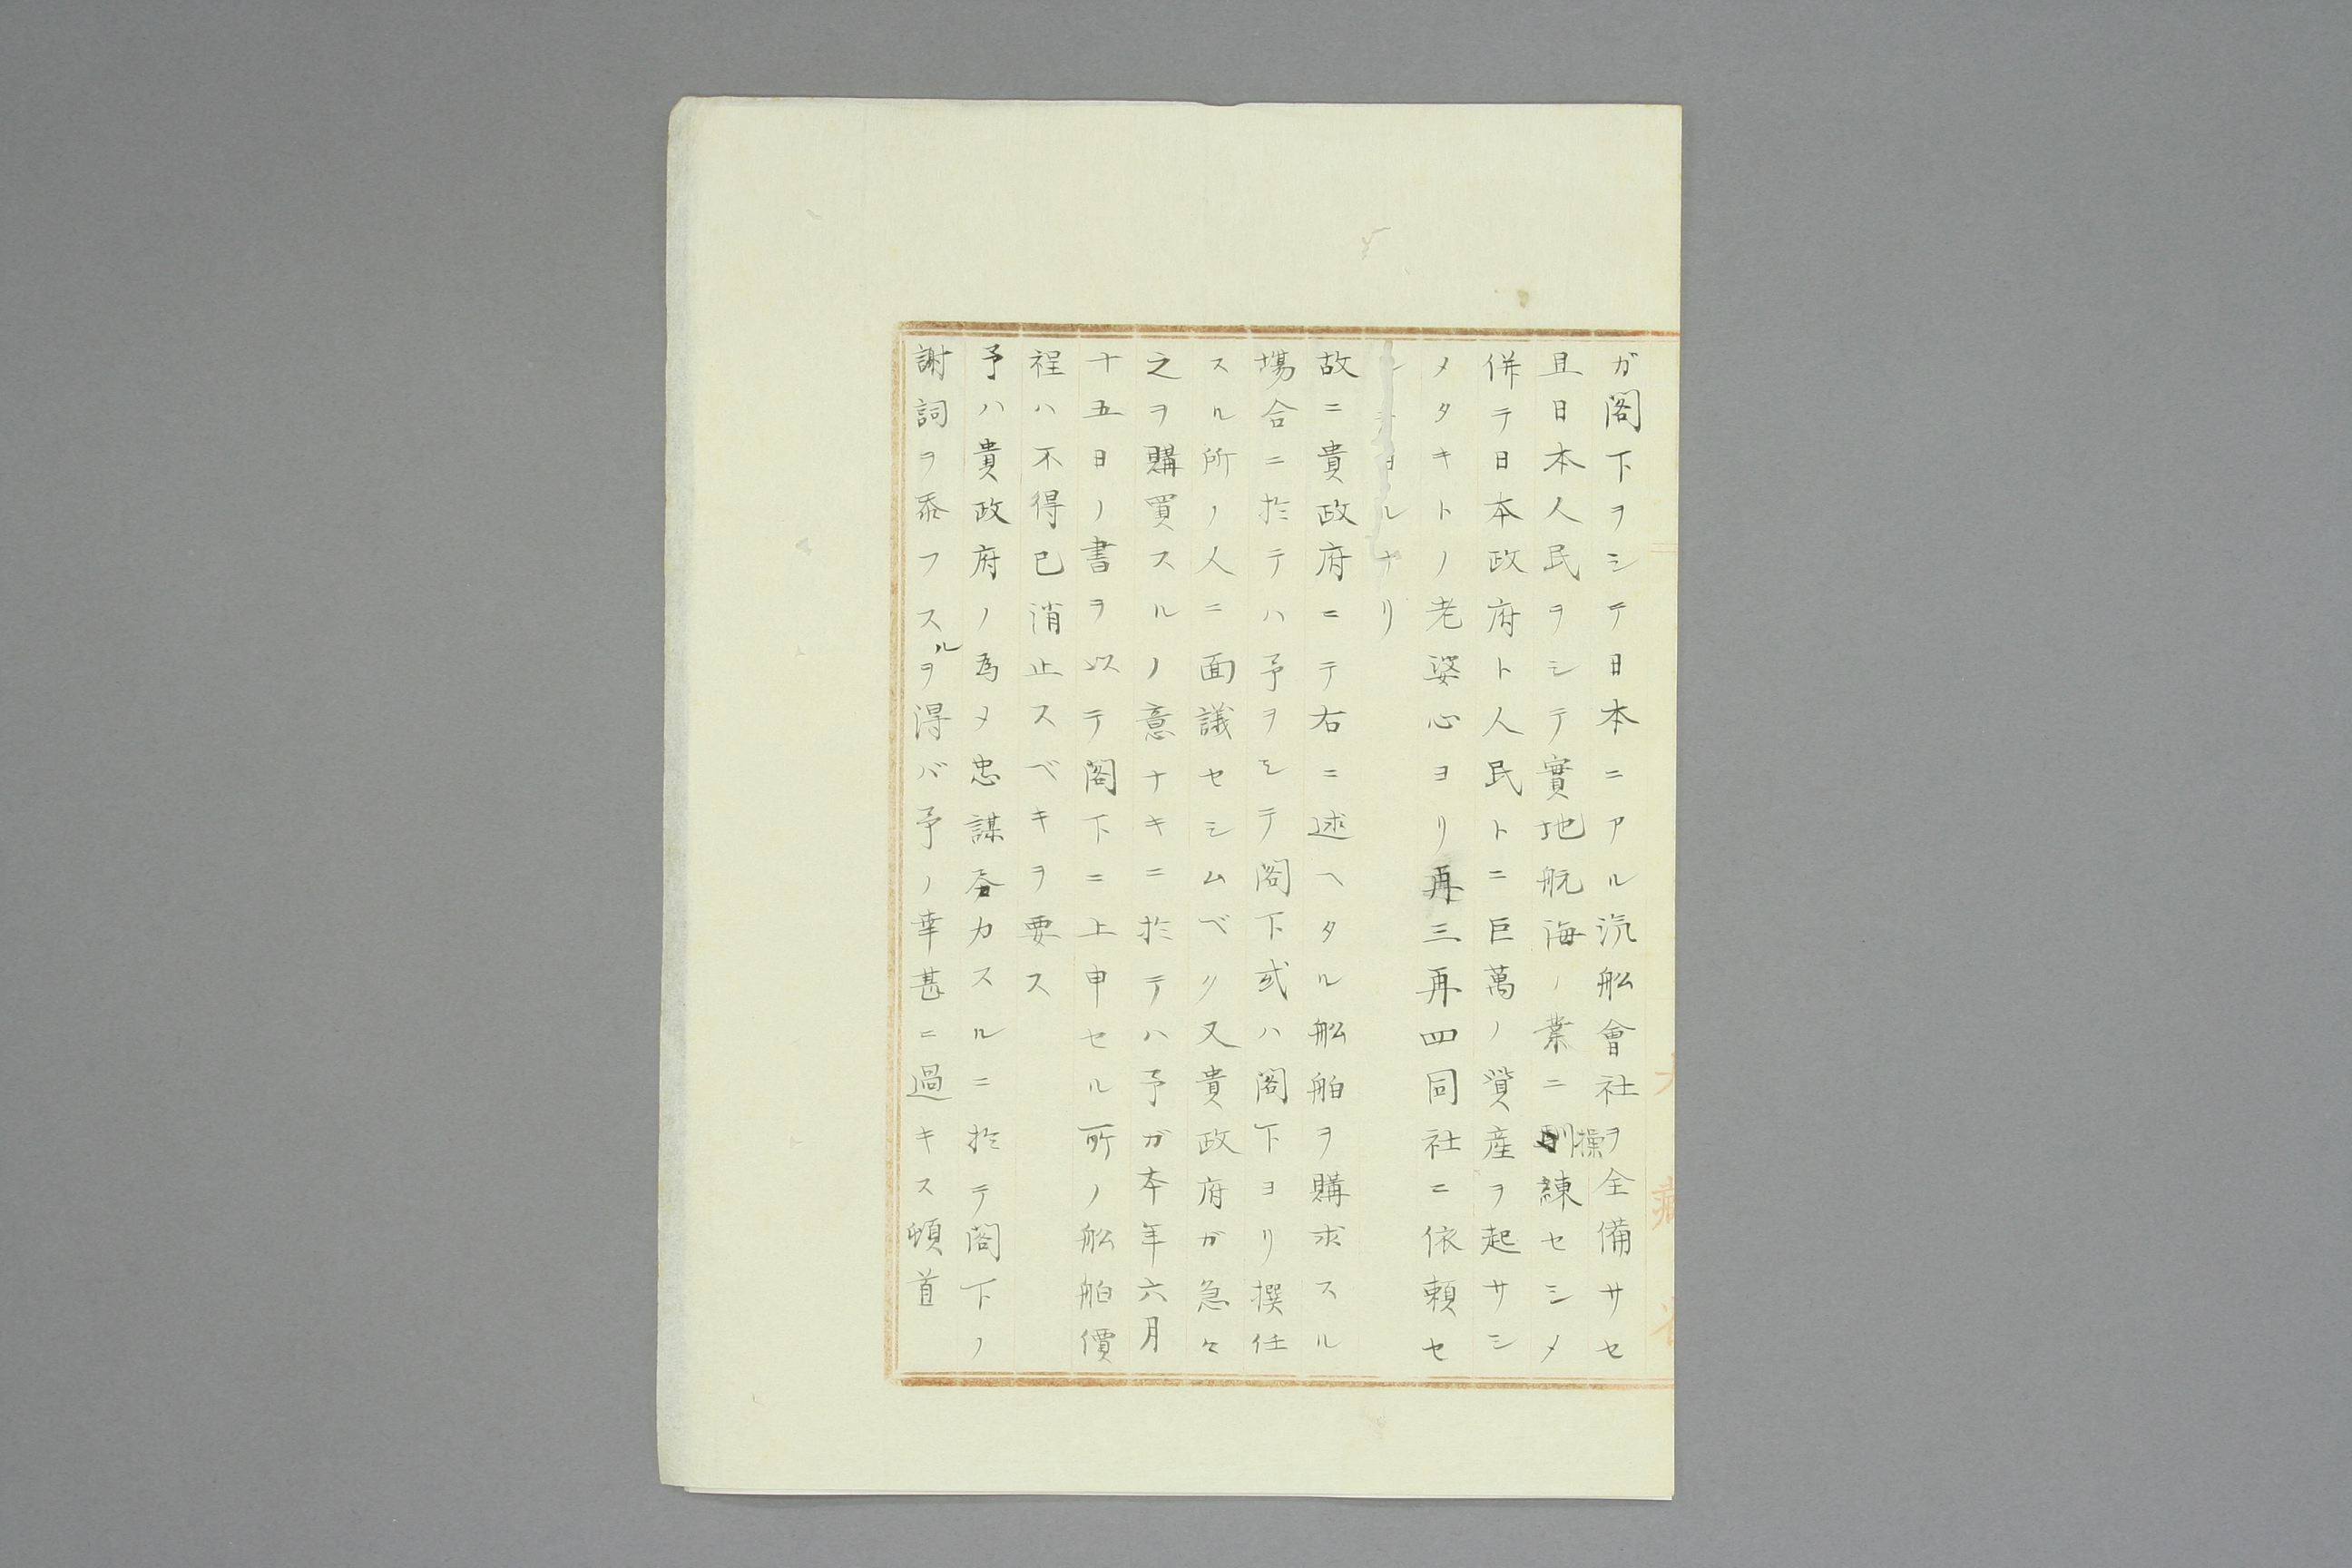 ガ閣下ヲシテ日本ニアル汽舩會社ヲ全備サセ
且日本人民ヲシテ實地航海ノ業ニ操練セシメ
併テ日本政府ト人民トニ巨萬ノ貲産ヲ起サシ
メタキトノ老婆心ヨリ再三再四同社ニ依頼セ
ルナリ
故ニ貴政府ニテ右ニ述ヘタル舩舶ヲ購求スル
塲合ニ於テハ予ヲシテ閣下或ハ閣下ヨリ撰任
スル所ノ人ニ面議セシムベリ又貴政府ガ急々
之ヲ購買スルノ意ナキニ於テハ予ガ本年六月
十五日ノ書ヲ以テ閣下ニ上申セル所ノ舩舶價
程ハ不得已消止スベキヲ要ス
予ハ貴政府ノ為メ忠謀奔力スルニ於テ閣下ノ
謝詞ヲ忝フスルヲ得バ予ノ幸甚ニ過キス頓首